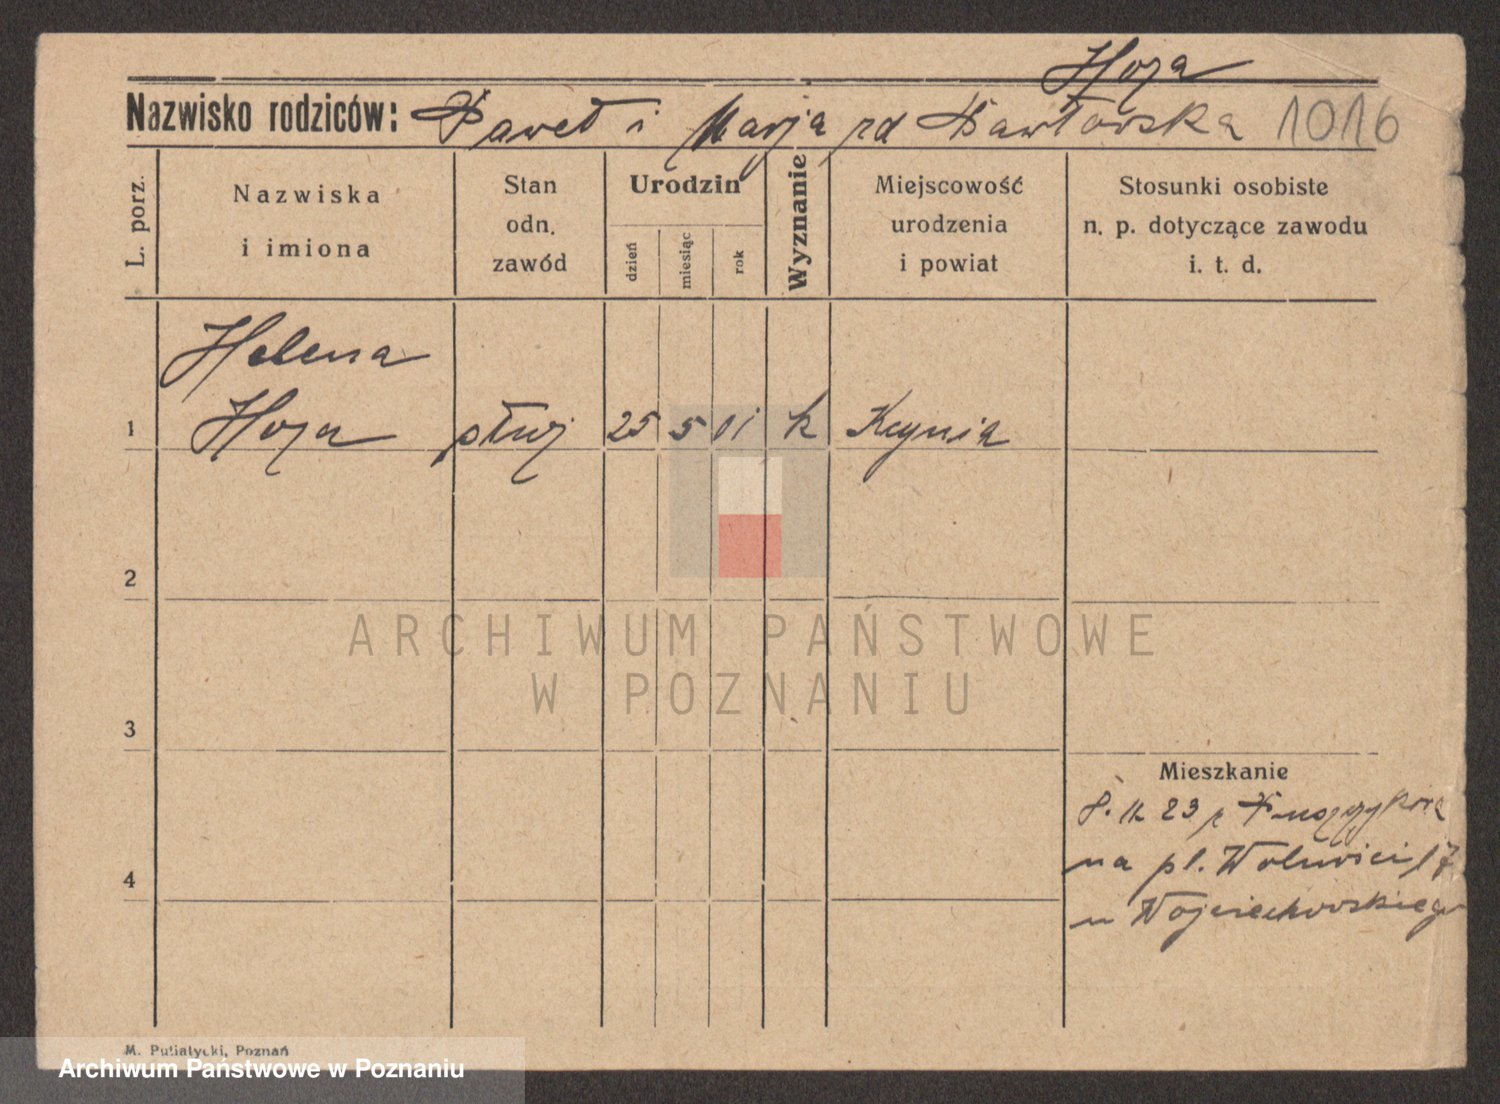 Hoja
Nazwisko rodziców: Paweł i Marja rd Pawłowska 1016
L. porz.
Nazwiska
i imiona
Stan
odn.
zawód
Urodzin
dzień
miesiąc
rok
Wyznanie
Miejscowość
urodzenia
i powiat
Stosunki osobiste
n. p. dotyczące zawodu
i. t. d.
Helena
1 Hoja służ 25 5 01 k Kcynia
2
ARCHIWUM PAŃSTWOWE
W POZNANIU
3
Mieszkanie
23 z
na pl. Wolności 17
u Wojciechowskiego
4
M. Putiatycki, Poznań
Archiwum Państwowe w Poznaniu